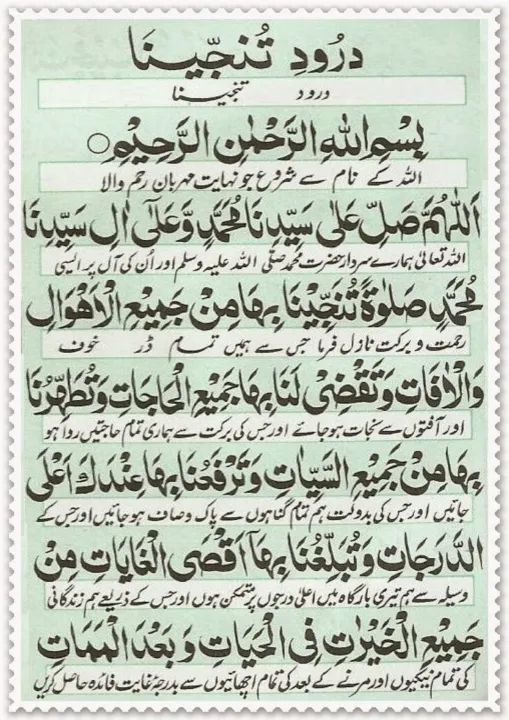 درُودِ تُنَجِّینَا
درود تنجینا
بِسْمِ اللهِ الرَّحْمٰنِ الرَّحِیْمِ ○
اللہ کے نام سے شروع جو نہایت مہربان رحم والا
اَللّٰهُمَّ صَلِّ عَلٰى سَیِّدِنَا مُحَمَّدٍ وَّعَلٰٓى اٰلِ سَیِّدِنَا
اللہ تعالیٰ ہمارے سردار حضرت محمد صلی اللہ علیہ وسلم اور اُن کی آل پر ایسی
مُحَمَّدٍ صَلٰوةً تُنَجِّیْنَا بِهَا مِنْ جَمِیْعِ الْاَهْوَالِ
رحمت و برکت نازل فرما جس سے ہمیں تمام ڈر خوف
وَالْاٰفَاتِ وَتَقْضِیْ لَنَا بِهَا جَمِیْعَ الْحَاجَاتِ وَتُطَهِّرُنَا
اور آفتوں سے نجات ہو جائے اور جس کی برکت سے ہماری تمام حاجتیں روا ہو
بِهَا مِنْ جَمِیْعِ السَّیِّاٰتِ وَتَرْفَعُنَا بِهَا عِنْدَكَ اَعْلَى
جائیں اور جس کی بدولت ہم تمام گناہوں سے پاک و صاف ہو جائیں اور جس کے
الدَّرَجَاتِ وَتُبَلِّغُنَا بِهَآ اَقْصَى الْغَایَاتِ مِنْ
وسیلہ سے ہم تیری بارگاہ میں اعلیٰ درجوں پر متمکن ہوں اور جس کے ذریعے ہم زندگانی
جَمِیْعِ الْخَیْرٰتِ فِى الْحَیَاتِ وَبَعْدَ الْمَمَاتِ
کی تمام نیکیوں اور مرنے کے بعد کی تمام اچھائیوں سے بدرجہ غایت فائدہ حاصل کریں